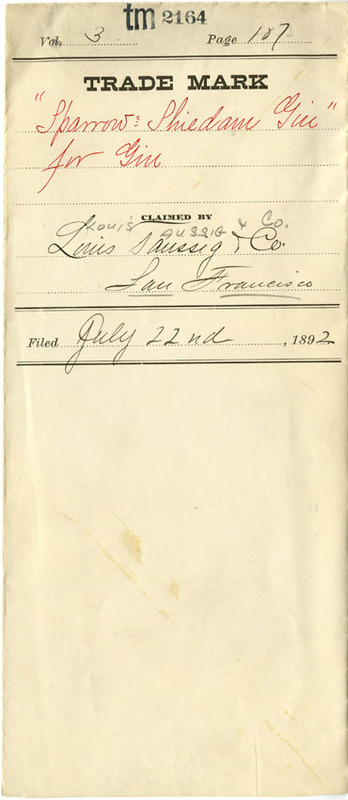 tm 2164
Vol. 3 Page 187
TRADE MARK
"Sparrow: Shiedam Gin"
for Gin
CLAIMED BY
Louis Taussig & Co.
Louis Taussig & Co.
San Francisco
Filed July 22nd, 1892